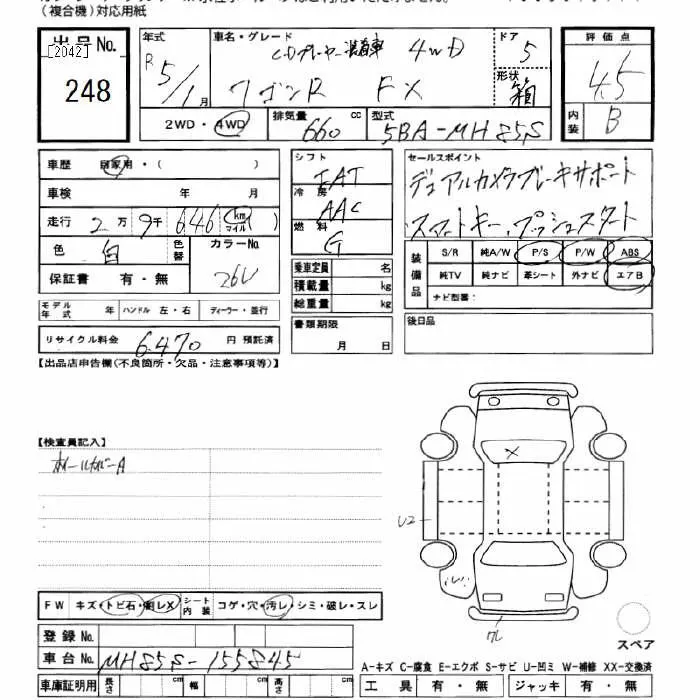 （複合機）対応用紙
出品No. [2042] 248
年式 R5/1月
車名・グレード CDプレーヤー装着車 4WD
ワゴンR FX
ドア 5
形状 箱
評価点 4.5
内装 B
2WD・4WD
排気量 660 cc
型式 5BA-MH85S
車歴 自家用・( )
車検 年 月
走行 2万9千646 km マイル
色 白 色替
カラーNo. 26U
保証書 有・無
シフト FAT
冷房 AAC
燃料 G
乗車定員 名
積載量 kg
総重量 kg
セールスポイント
デュアルカメラブレーキサポート
スマートキー、プッシュスタート
装備品 S/R 純A/W P/S P/W ABS
純TV 純ナビ 革シート 外ナビ エアB
ナビ型番：
モデル年式 年 ハンドル 左・右 ディーラー・並行
リサイクル料金 6,470 円 預託済
書類期限 月 日
後日品
【出品店申告欄(不良箇所・欠品・注意事項等)】
【検査員記入】
ホイールカバーA
X
U2
クレ
FW キズ・トビ石・銅レX シート内装 コゲ・穴・汚レ・シミ・破レ・スレ
登録 No.
車台 No. MH85S-155845
車庫証明用 長さ cm 幅 cm 高さ cm
スペア
A-キズ C-腐食 E-エクボ S-サビ U-凹ミ W-補修 XX-交換済
工具 有・無 ジャッキ 有・無